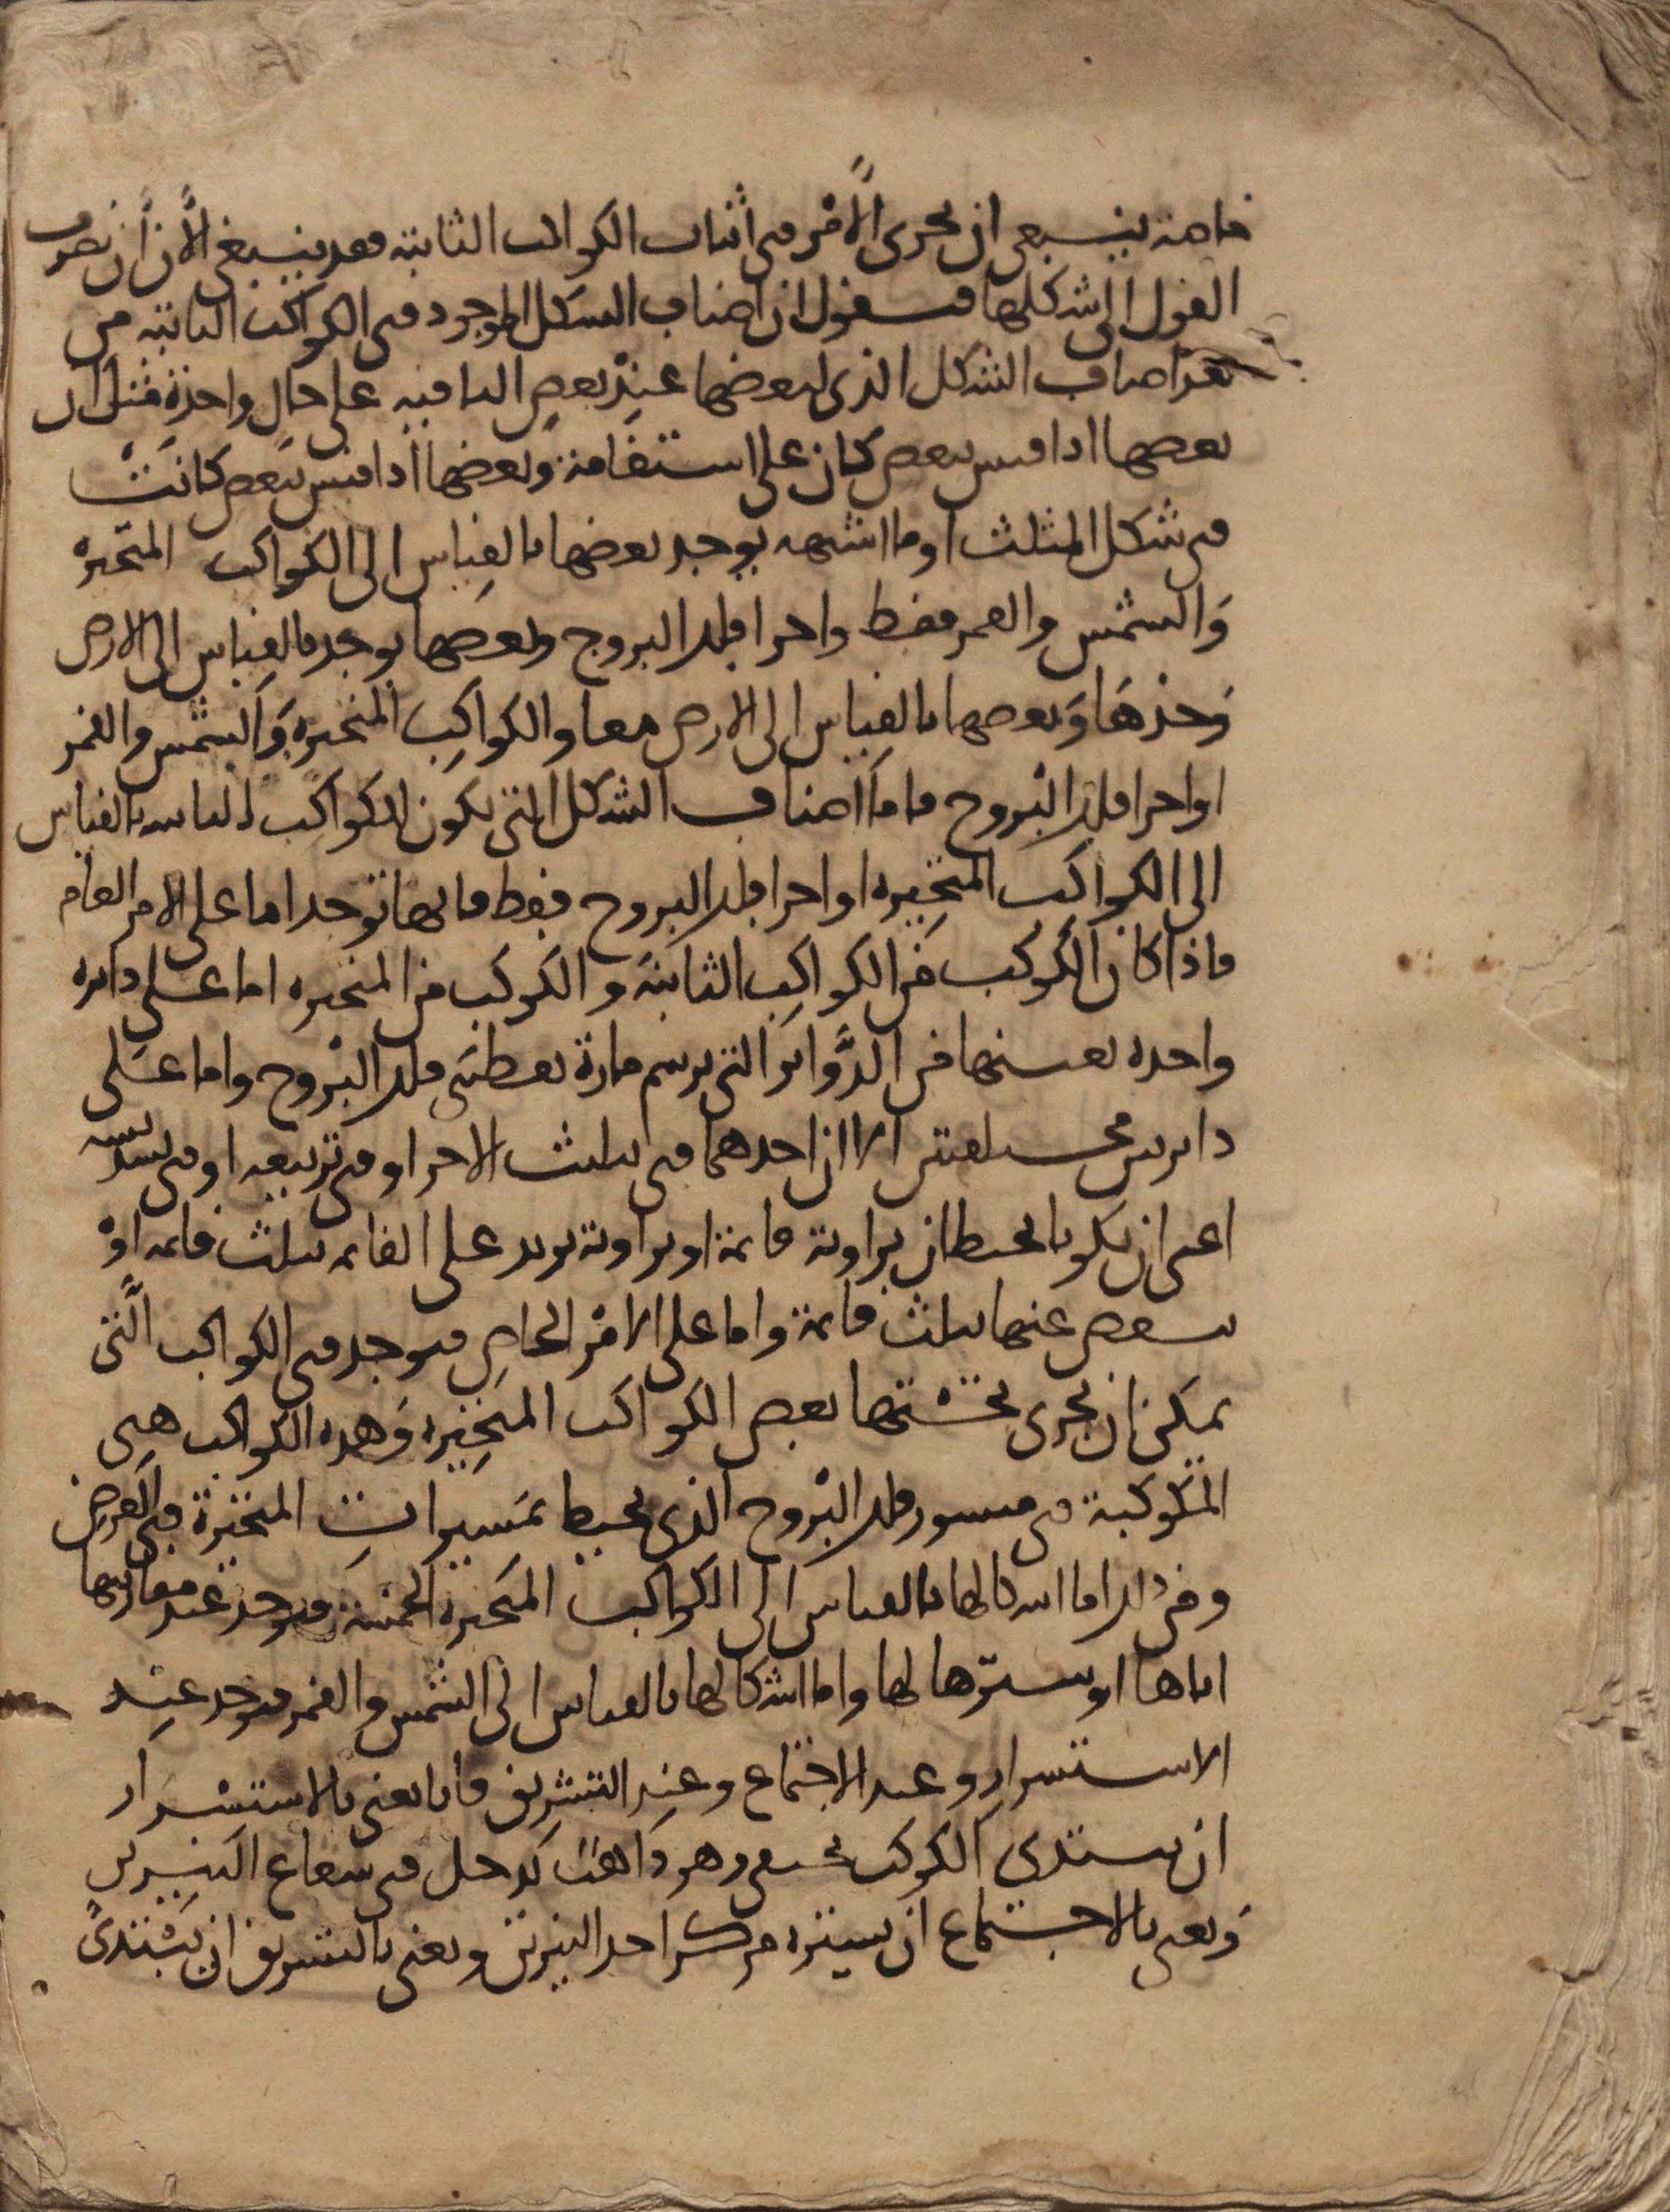 خاصة ينبغي ان يجرى الامر في اثبات الكواكب الثابتة فقد ينبغي الان ان نصرف
القول الى شكلها فنقول ان اصناف الشكل الموجود في الكواكب الثابتة من
بعد اصناف الشكل الذي لبعضها عند بعض الباقية على حال واحدة مثل ان
بعضها اذا قيس ببعض كان على استقامة وبعضها اذا قيس ببعض كانت
في شكل المثلث او ما اشبهه يوجد بعضها بالقياس الى الكواكب المتحيرة
والشمس والقمر فقط واجزا فلك البروج وبعضها يوجد بالقياس الى الارض
وحدها وبعضها بالقياس الى الارض معا والكواكب المتحيرة والشمس والقمر
او اجزا فلك البروج فاما اصناف الشكل التي تكون للكواكب الثابتة بالقياس
الى الكواكب المتحيرة او اجزا فلك البروج فقط فانها توجد اما على الامر العام
فاذا كان الكوكب من الكواكب الثابتة والكوكب من المتحيرة اما على دائرة
واحدة بعينها من الدوائر التي ترسم مارة بقطبي فلك البروج واما على
دائرتين مختلفتين الا ان احدهما في تثليث الاخر او في تربيعه او في تسديسه
اعني ان تكونا تحيطان بزاوية قائمة او بزاوية تزيد على القائمة بثلث قائمة او
تنقص عنها بثلث قائمة واما على الامر الخاص فتوجد في الكواكب التي
يمكن ان يجرى تحتها بعض الكواكب المتحيرة وهذه الكواكب هي
المكوكبة في منسور فلك البروج الذي يحيط بمسيرات المتحيرة في العرض
ومن ذلك اما اشكالها بالقياس الى الكواكب المتحيرة الخمسة فتوجد عند مقارنتها
اياها او سترها لها واما اشكالها بالقياس الى الشمس والقمر فتوجد عند
الاستسرار وعند الاجتماع وعند التشريق فانا نعني بالاستسرار
ان يبتدى الكوكب يختفي وهو ذاهب يدخل في شعاع النيرين
ونعني بالاجتماع ان يستره مركز احد النيرين ونعني بالتشريق ان يبتدئ